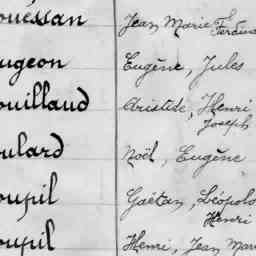 ouessan Jean Marie
Ferdina
ugeon Eugène, Jules
ouillaud Aristide, Henri
Joseph
oulard Noël, Eugène
oupil Gaëtan, Léopold
Henri
oupil Henri, Jean Mari